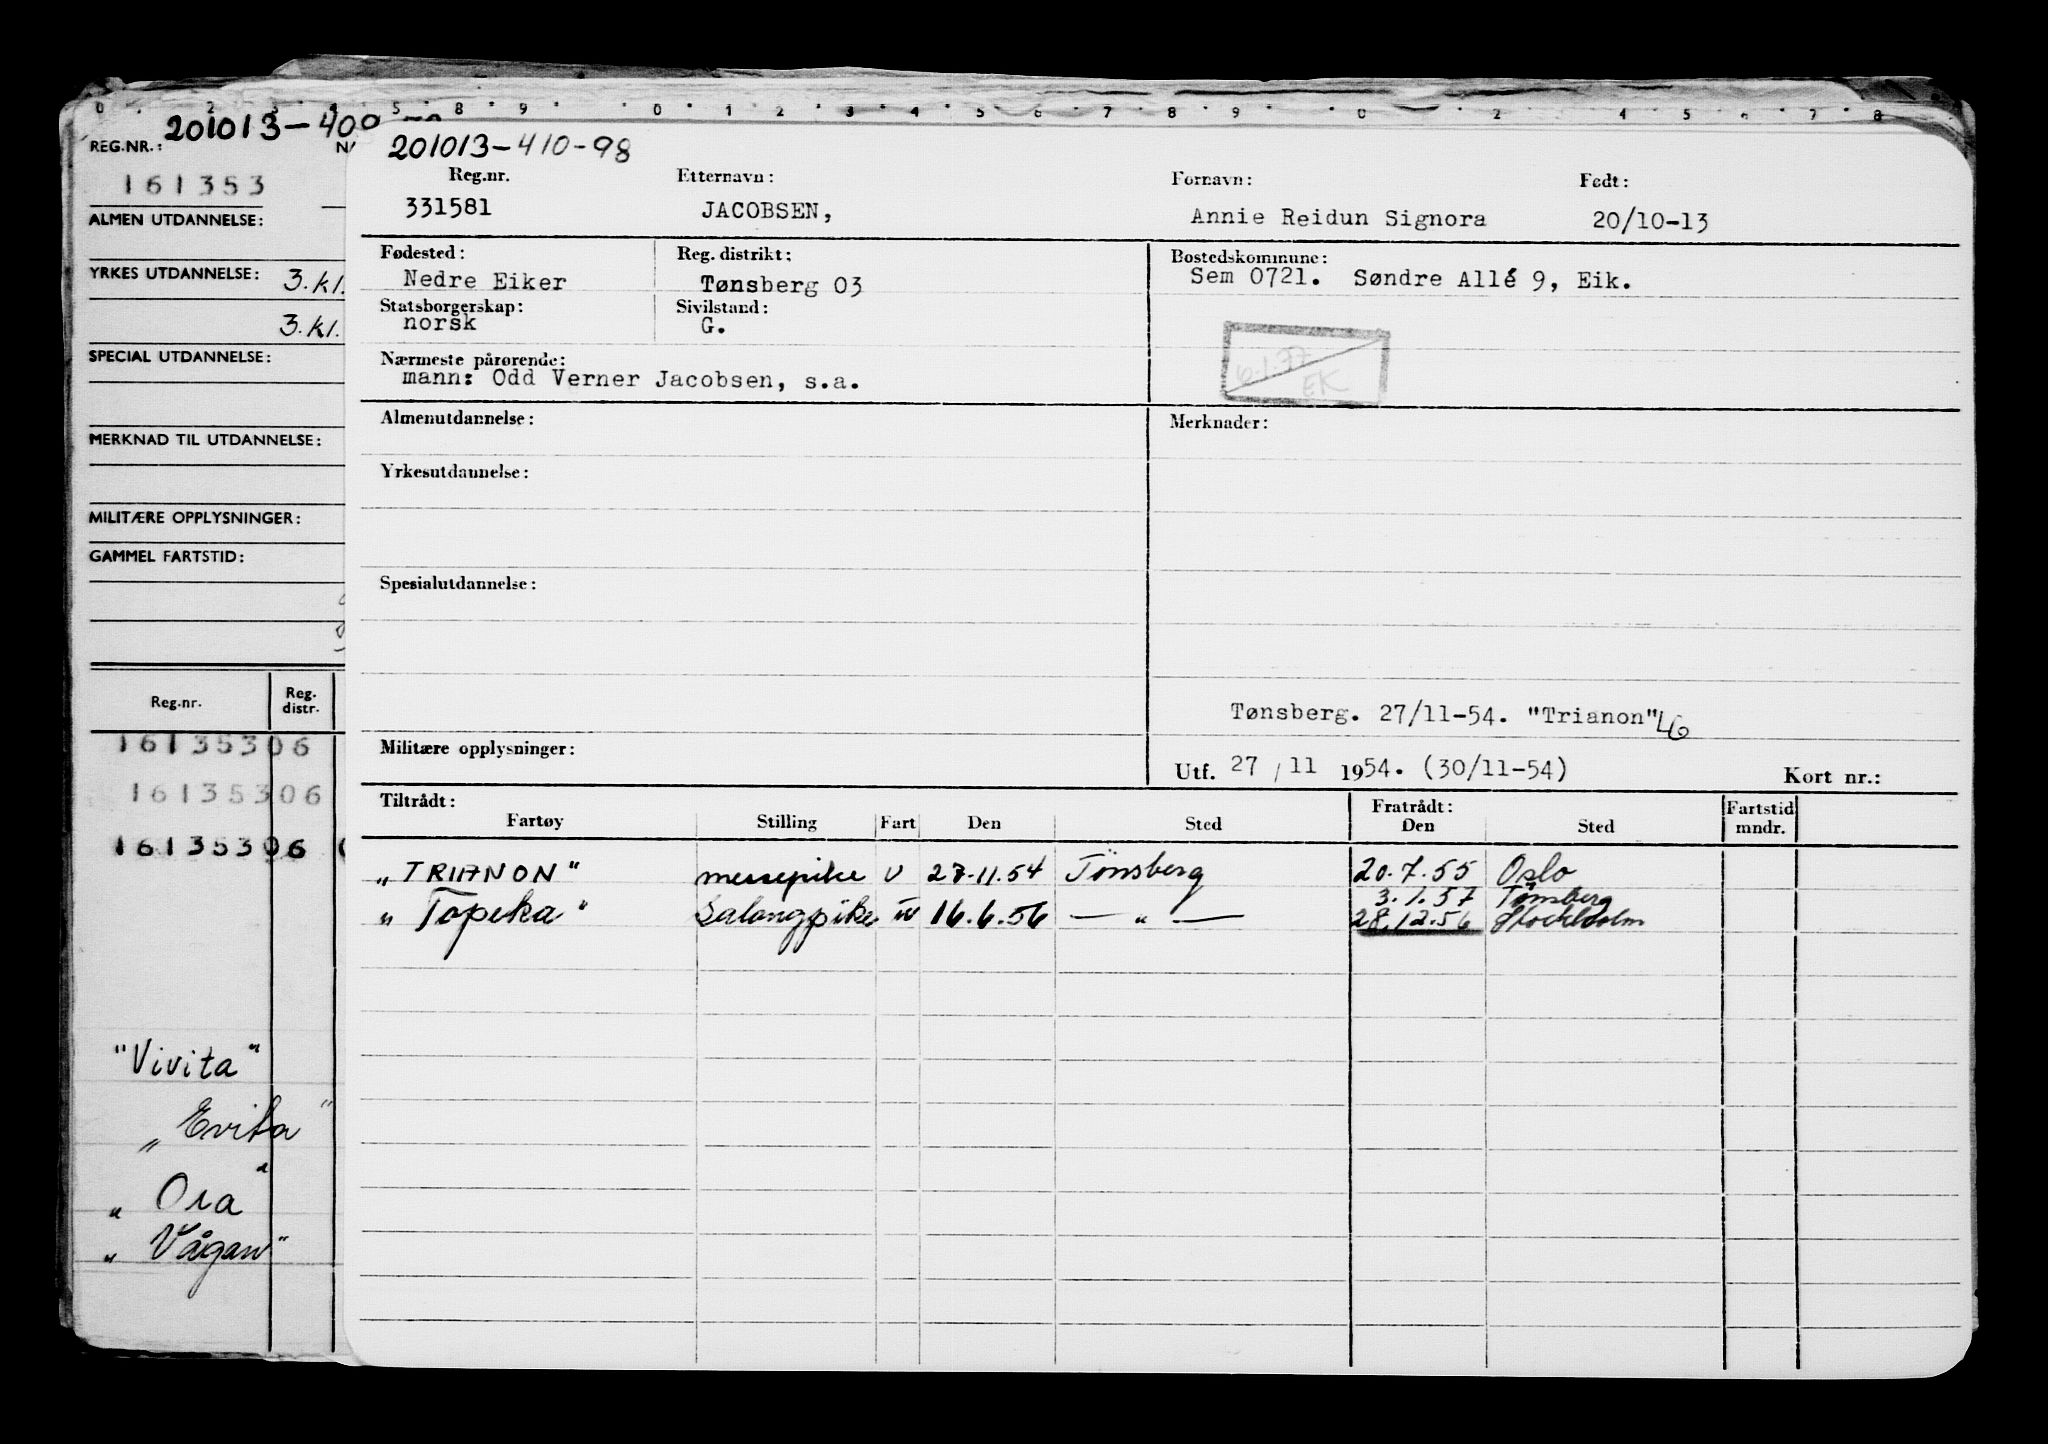 0 2 3 4 5 8 9 0 1 2 3 4 5 6 7 8 9 0 2 4 5 7 8
201013-400
REG.NR.:
161353
ALMEN UTDANNELSE:
YRKES UTDANNELSE: 3.kl.
3.kl.
SPECIAL UTDANNELSE:
MERKNAD TIL UTDANNELSE:
MILITÆRE OPPLYSNINGER:
GAMMEL FARTSTID:
Reg.nr. Reg. distr.
16135306
16135306
16135306
"Vivita"
„Evita"
„Ora"
„Vågan"
201013-410-98
Reg.nr. Etternavn: Fornavn: Født:
331581 JACOBSEN, Annie Reidun Signora 20/10-13
Fødested: Reg. distrikt: Bostedskommune:
Nedre Eiker Tønsberg 03 Sem 0721. Søndre Allé 9, Eik.
Statsborgerskap: Sivilstand:
norsk G.
6.1.77
EK
Nærmeste pårørende:
mann: Odd Verner Jacobsen, s.a.
Almenutdannelse: Merknader:
Yrkesutdannelse:
Spesialutdannelse:
Tønsberg. 27/11-54. "Trianon"
Militære opplysninger:
Utf. 27/11 1954. (30/11-54) Kort nr.:
Tiltrådt: Fratrådt: Fartstid
Fartøy Stilling Fart Den Sted Den Sted mndr.
„TRIANON" messepike U 27.11.54 Tönsberg 20.7.55 Oslo
3.1.57 Tønsberg
„Topeka" Salongpike U 16.6.56 — „ — 28.12.56 Stockholm